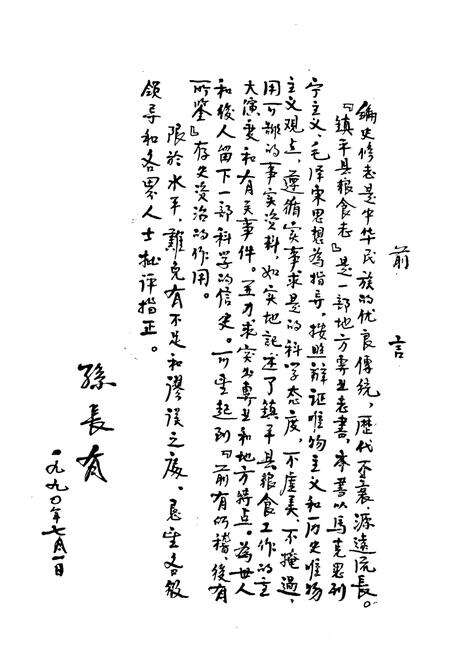 前言
编史修志是中华民族的优良傳统，歷代不衰，源遠流長。
『鎮平县粮食志』是一部地方專业志書，本書以馬克思列
宁主义、毛泽東思想為指导，按照辯证唯物主义和历史唯物
主义观点，遵循实事求是的科学态度，不虚美、不掩過，
用可靠的事实資料，如实地記述了鎮平县粮食工作的主
大演变和有关事件。并力求突出專业和地方特点。為世人
和後人留下一部科学的信史。可望起到『前有所稽，後有
所鉴』存史资治的作用。
限於水平，難免有不足和謬误之處，恳望各级
领导和各界人士批评指正。
孫長有
一九九〇年七月一日